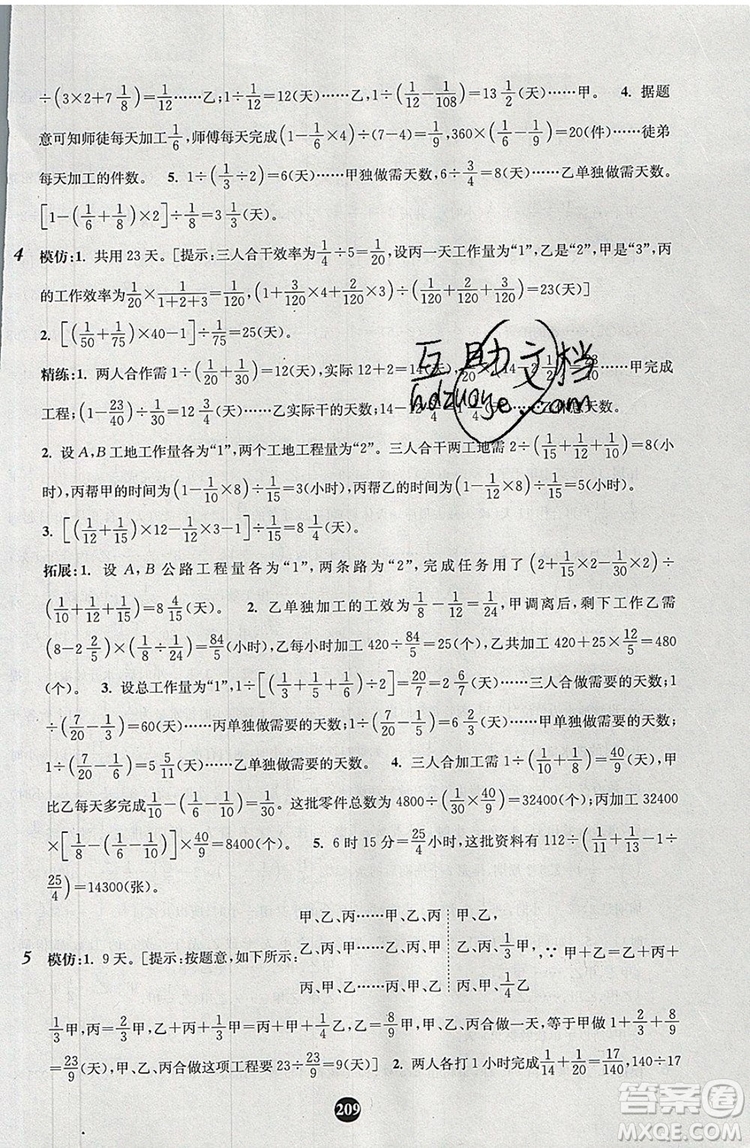 ÷(3×2+7 1/8)=1/12……乙;1÷1/12=12(天),1÷(1/12-1/108)=13 1/2(天)……甲。 4. 据题
意可知师徒每天加工1/6,师傅每天完成(1-1/6×4)÷(7-4)=1/9,360×(1/6-1/9)=20(件)……徒弟
每天加工的件数。 5. 1÷(1/3÷2)=6(天)……甲独做需天数,6÷3/4=8(天)……乙单独做需天数。
[1-(1/6+1/8)×2]÷1/8=3 1/3(天)。
4 模仿:1. 共用 23 天。[提示:三人合干效率为1/4÷5=1/20,设丙一天工作量为“1”,乙是“2”,甲是“3”,丙
的工作效率为1/20×1/(1+2+3)=1/120,(1/120+1/120×2+1/120×3×2+1/120×2×2+1/120×10)÷1/120=23(天)]
2. [(1/50+1/75)×40-1]÷1/75=25(天)。
精练:1. 两人合作需 1÷(1/20+1/30)=12(天),实际 12+2=14(天),
……甲完成
工程;(1-23/40)÷1/30=12 3/4(天)……乙实际干的天数;14-12 3/4=1 1/4(天)……
天数。
2. 设 A,B 工地工作量各为“1”,两个工地工程量为“2”。三人合干两工地需 2÷(1/15+1/12+1/10)=8(小
时),丙帮甲的时间为(1-1/10×8)÷1/15=3(小时),丙帮乙的时间为(1-1/12×8)÷1/15=5(小时)。
3. [(1/10+1/15)×12-1/12×3-1]÷1/11
=8 1/4(天)。
拓展:1. 设 A,B 公路工程量各为“1”,两条路为“2”,完成任务用了(2+1/15×2-1/30)÷
(1/10+1/12+1/15)=8 2/5(天)。 2. 乙单独加工的工效为1/8-1/12=1/24,甲调出后,剩下工作乙需
(8-2 2/5)×(1/8÷1/24)=84/5(小时),乙每小时加工 420÷84/5=25(个),乙共加工 420+25×12/5=480
(个)。 3. 设总工作量为“1”,1÷[(1/3+1/5+1/6)÷2]=20/7=2 6/7(天)……三人合做需要的天数;1
÷(7/20-1/3)=60(天)……丙单独做需要的天数;1÷(7/20-1/5)=6 2/3(天)……甲单独做需要的天数,
1÷(7/20-1/6)=5 5/11(天)……乙单独做需要的天数。 4. 三人合加工需 1÷(1/8+1/10)=40/9(天),甲
比乙每天多完成1/6-(1/8+1/10-1/6)×1/10=1/30。这批零件总数为 4800÷(1/30×40/9)=32400(个);丙加工 32400
×[1/6-1/8-(1/6-1/10)]×40/9=8400(个)。 5. 6 时 15 分=25/4小时,这批资料有 112÷(1/11+1/13-1÷
25/4)=14300(张)。
甲、乙、丙……甲、乙、丙 甲、乙,
5 模仿:1. 9 天。[提示:按题意,如下所示: 乙、丙、甲……乙、丙、甲 乙、丙、1/3甲,∵ 甲+乙=乙+丙+
丙、甲、乙……丙、甲、乙 丙、甲、1/4乙
1/3甲,丙=2/3甲,乙+丙+1/3甲=丙+甲+1/4乙,乙=8/9甲,甲、乙、丙合做一天,等于甲做 1+8/9+2/3
=23/9(天),甲、乙、丙合做这项工程要 23÷23/9=9(天)] 2. 两人各打 1 小时后,140÷17
209
互助文档
hdzuoye.com
答案圈
MXQE.COM